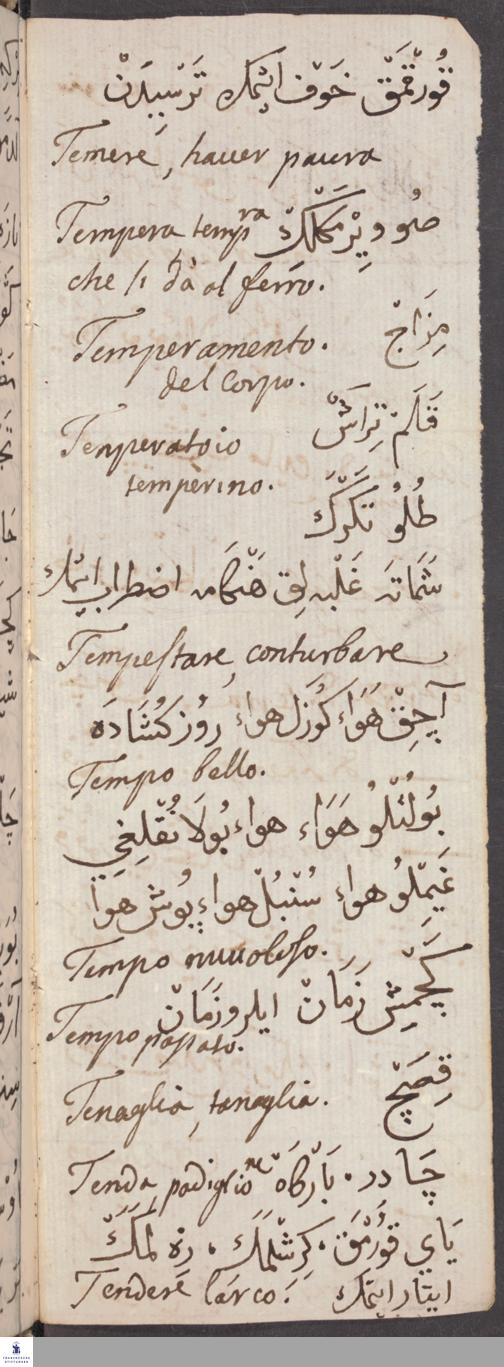 قُورْقْمَقْ خَوْف ايتْمَك تَرْسِيدَنْ
Temere, hauer paura
Tempera temp.ra صُو وِيرْمَكْلِكْ
che si dà al ferro.
Temperamento. مِزَاجْ
del Corpo.
Temperatoio قَلَمْ تِرَاشْ
temperino.
طُلُو
شَمَاتَه غَلْبَه لِق هَنْكَامَه اضطراب ايتمك
Tempestare, conturbare
آچِقْ هَوَاء كُوزَل هواء رُوز كُشَادَه
Tempo bello.
بُولُتْلُو هَوَاء هواء بُولَانُقْلِغِي
غَيِمْلُو هواء سُنْبُلْ هواء پُوش هوا
Tempo nuuoloso.
كَچْمِش زَمَانْ ايلرو زَمَانْ
Tempo passato.
Tenaglia, tanaglia. قِصَچْ
Tenda, padiglio.ne بَارْكَاه . چَادر
يَاي قُورْمَقْ . كِرِشْلَمَك . زه لَمَكْ
Tendere l'arco. ايتمك